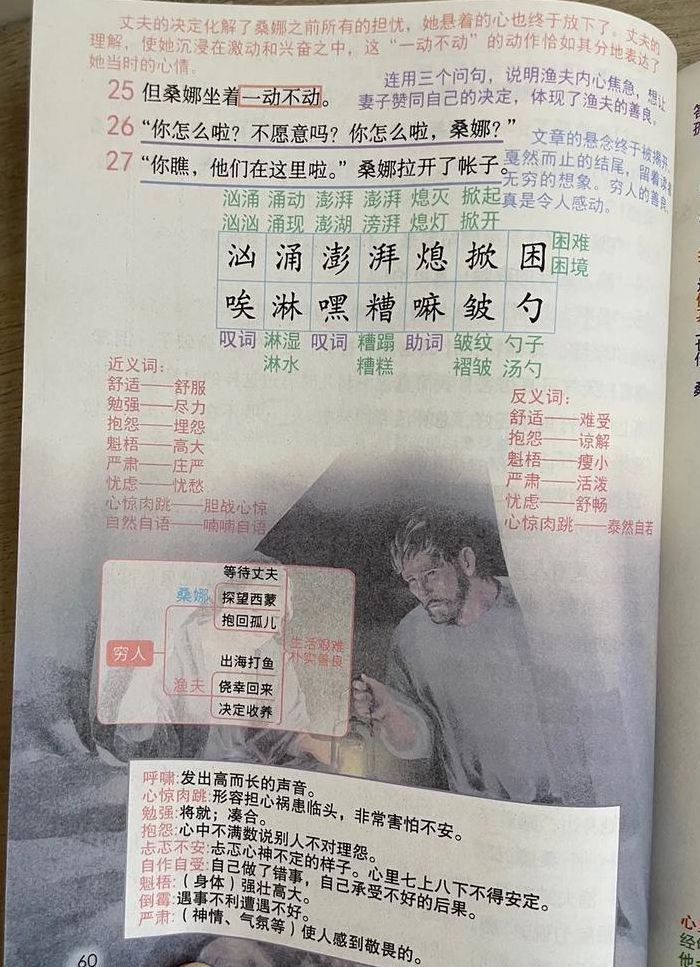 丈夫的决定化解了桑娜之前所有的担忧，她悬着的心也终于放下了。丈夫的
理解，使她沉浸在激动和兴奋之中，这“一动不动”的动作恰如其分地表达了
她当时的心情。
25 但桑娜坐着一动不动。
连用三个问句，说明渔夫内心焦急，想让
妻子赞同自己的决定，体现了渔夫的善良。
26 “你怎么啦？不愿意吗？你怎么啦，桑娜？”
27 “你瞧，他们在这里啦。”桑娜拉开了帐子。
文章的悬念终于被揭开，
戛然而止的结尾，留着读者
无穷的想象。穷人的善良，
真是令人感动。
汹涌 涌动 澎湃 澎湃 熄灭 掀起
汹汹 涌现 澎湖 滂湃 熄灯 掀开
汹 涌 澎 湃 熄 掀 困
困难
困境
唉 淋 嘿 糟 嘛 皱 勺
叹词 淋湿 叹词 糟蹋 助词 皱纹 勺子
淋水 糟糕 褶皱 汤勺
近义词：
舒适——舒服
勉强——尽力
抱怨——埋怨
魁梧——高大
严肃——庄严
忧虑——忧愁
心惊肉跳——胆战心惊
自然自语——喃喃自语
反义词：
舒适——难受
抱怨——谅解
魁梧——瘦小
严肃——活泼
忧虑——舒畅
心惊肉跳——泰然自若
穷人
桑娜
等待丈夫
探望西蒙
抱回孤儿
渔夫
出海打鱼
侥幸回来
决定收养
生活艰难
朴实善良
呼啸：发出高而长的声音。
心惊肉跳：形容担心祸患临头，非常害怕不安。
勉强：将就；凑合。
抱怨：心中不满数说别人不对埋怨。
忐忑不安：忐忑心神不定的样子。心里七上八下不得安定。
自作自受：自己做了错事，自己承受不好的后果。
魁梧：（身体）强壮高大。
倒霉：遇事不利遭遇不好。
严肃：（神情、气氛等）使人感到敬畏的。
60